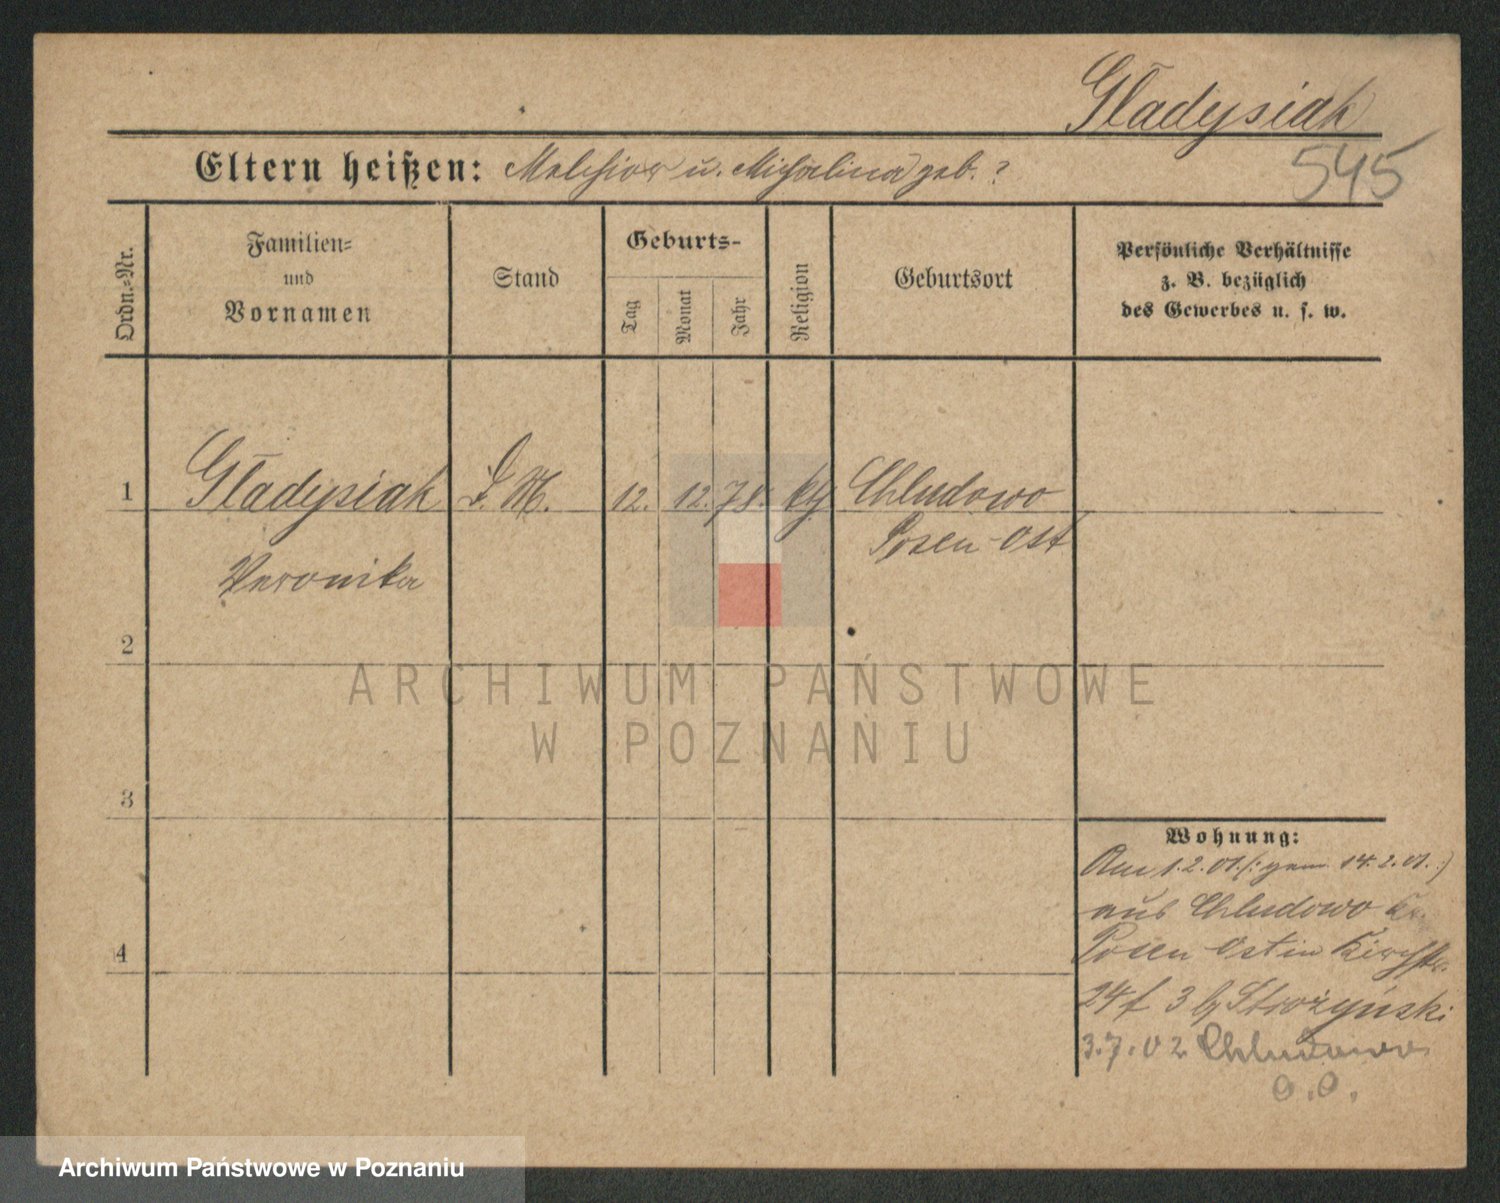 Gładysiak
Eltern heißen: Melchior u. Michalina geb. ?
545
Ordn.-Nr.
Familien-
und
Vornamen
Stand
Geburts-
Tag
Monat
Jahr
Religion
Geburtsort
Persönliche Verhältnisse
z. B. bezüglich
des Gewerbes u. s. w.
1 Gładysiak D. M. 12. 12. 78. kth Chludowo
Posen-Ost
Veronika
2
ARCHIWUM PAŃSTWOWE
W POZNANIU
3
Wohnung:
Am 1.2.01. (: gem. 14.2.01. :)
aus Chludowo Kr.
4
Posen Ost in Kirchstr.
24 f 3 b/ Strożyński
3.7.02 Chludowo
O. O.
Archiwum Państwowe w Poznaniu